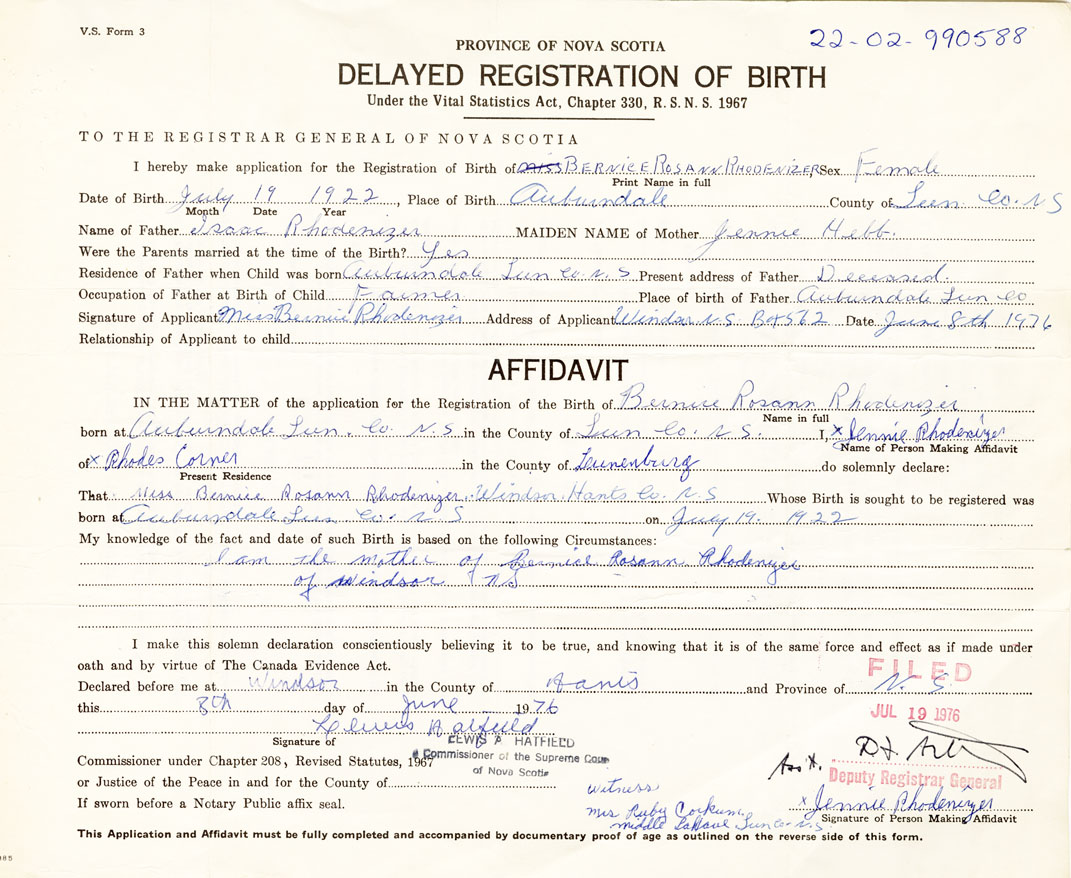 V.S. Form 3
22-02-990588
PROVINCE OF NOVA SCOTIA
DELAYED REGISTRATION OF BIRTH
Under the Vital Statistics Act, Chapter 330, R. S. N. S. 1967
TO THE REGISTRAR GENERAL OF NOVA SCOTIA
I hereby make application for the Registration of Birth of Miss BERNICE ROSANN RHODENIZER Sex Female
Print Name in full
Date of Birth July 19 1922, Place of Birth Auburndale County of Lun Co. N S
Month Date Year
Name of Father Isaac Rhodenizer MAIDEN NAME of Mother Jennie Hebb.
Were the Parents married at the time of the Birth? Yes
Residence of Father when Child was born Auburndale Lun Co. N. S. Present address of Father Deceased.
Occupation of Father at Birth of Child Farmer Place of birth of Father Auburndale Lun Co
Signature of Applicant Miss Bernice Rhodenizer Address of Applicant Windsor N S. Box 562 Date June 8th 1976
Relationship of Applicant to child
AFFIDAVIT
IN THE MATTER of the application for the Registration of the Birth of Bernice Rosann Rhodenizer
Name in full
born at Auburndale Lun. Co. N. S in the County of Lun Co. N S. I, x Jennie Rhodenizer
Name of Person Making Affidavit
of x Rhodes Corner in the County of Lunenburg do solemnly declare:
Present Residence
That Miss Bernice Rosann Rhodenizer, Windsor, Hants Co. N S Whose Birth is sought to be registered was
born at Auburndale Lun Co. N S on July 19. 1922
My knowledge of the fact and date of such Birth is based on the following Circumstances:
I am the mother of Bernice Rosann Rhodenizer
of Windsor NS
I make this solemn declaration conscientiously believing it to be true, and knowing that it is of the same force and effect as if made under
oath and by virtue of The Canada Evidence Act.
FILED
Declared before me at Windsor in the County of Hants and Province of N. S.
this 8th day of June 1976
JUL 19 1976
Lewis A Hatfield
Signature of
LEWIS A HATFIELD
A Commissioner of the Supreme Court
of Nova Scotia
Commissioner under Chapter 208, Revised Statutes, 1967
Ass't.
Deputy Registrar General
or Justice of the Peace in and for the County of
If sworn before a Notary Public affix seal.
Witness
Mrs Ruby Corkum
middle LaHave Lun Co. N. S.
x Jennie Rhodenizer
Signature of Person Making Affidavit
This Application and Affidavit must be fully completed and accompanied by documentary proof of age as outlined on the reverse side of this form.